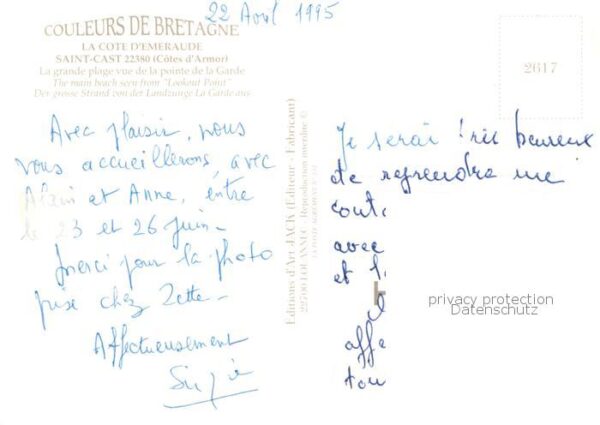 22 Avril 1995
COULEURS DE BRETAGNE
LA COTE D'EMERAUDE
SAINT-CAST 22380 (Côtes d'Armor)
La grande plage vue de la pointe de la Garde
The main beach seen from "Lookout Point"
Der grosse Strand von der Landzunge La Garde aus
2617
Avec plaisir, nous
vous accueillerons, avec
Alain et Anne, entre
le 23 et 26 juin.
Merci pour la photo
prise chez Zette.
Affectueusement
Suzie
Editions d'Art JACK (Editeur - Fabricant)
22700 LOUANNEC - Reproduction interdite ©
Je serai très heureux
de reprendre une
cont
avec
et
affe
tou
privacy protection
Datenschutz